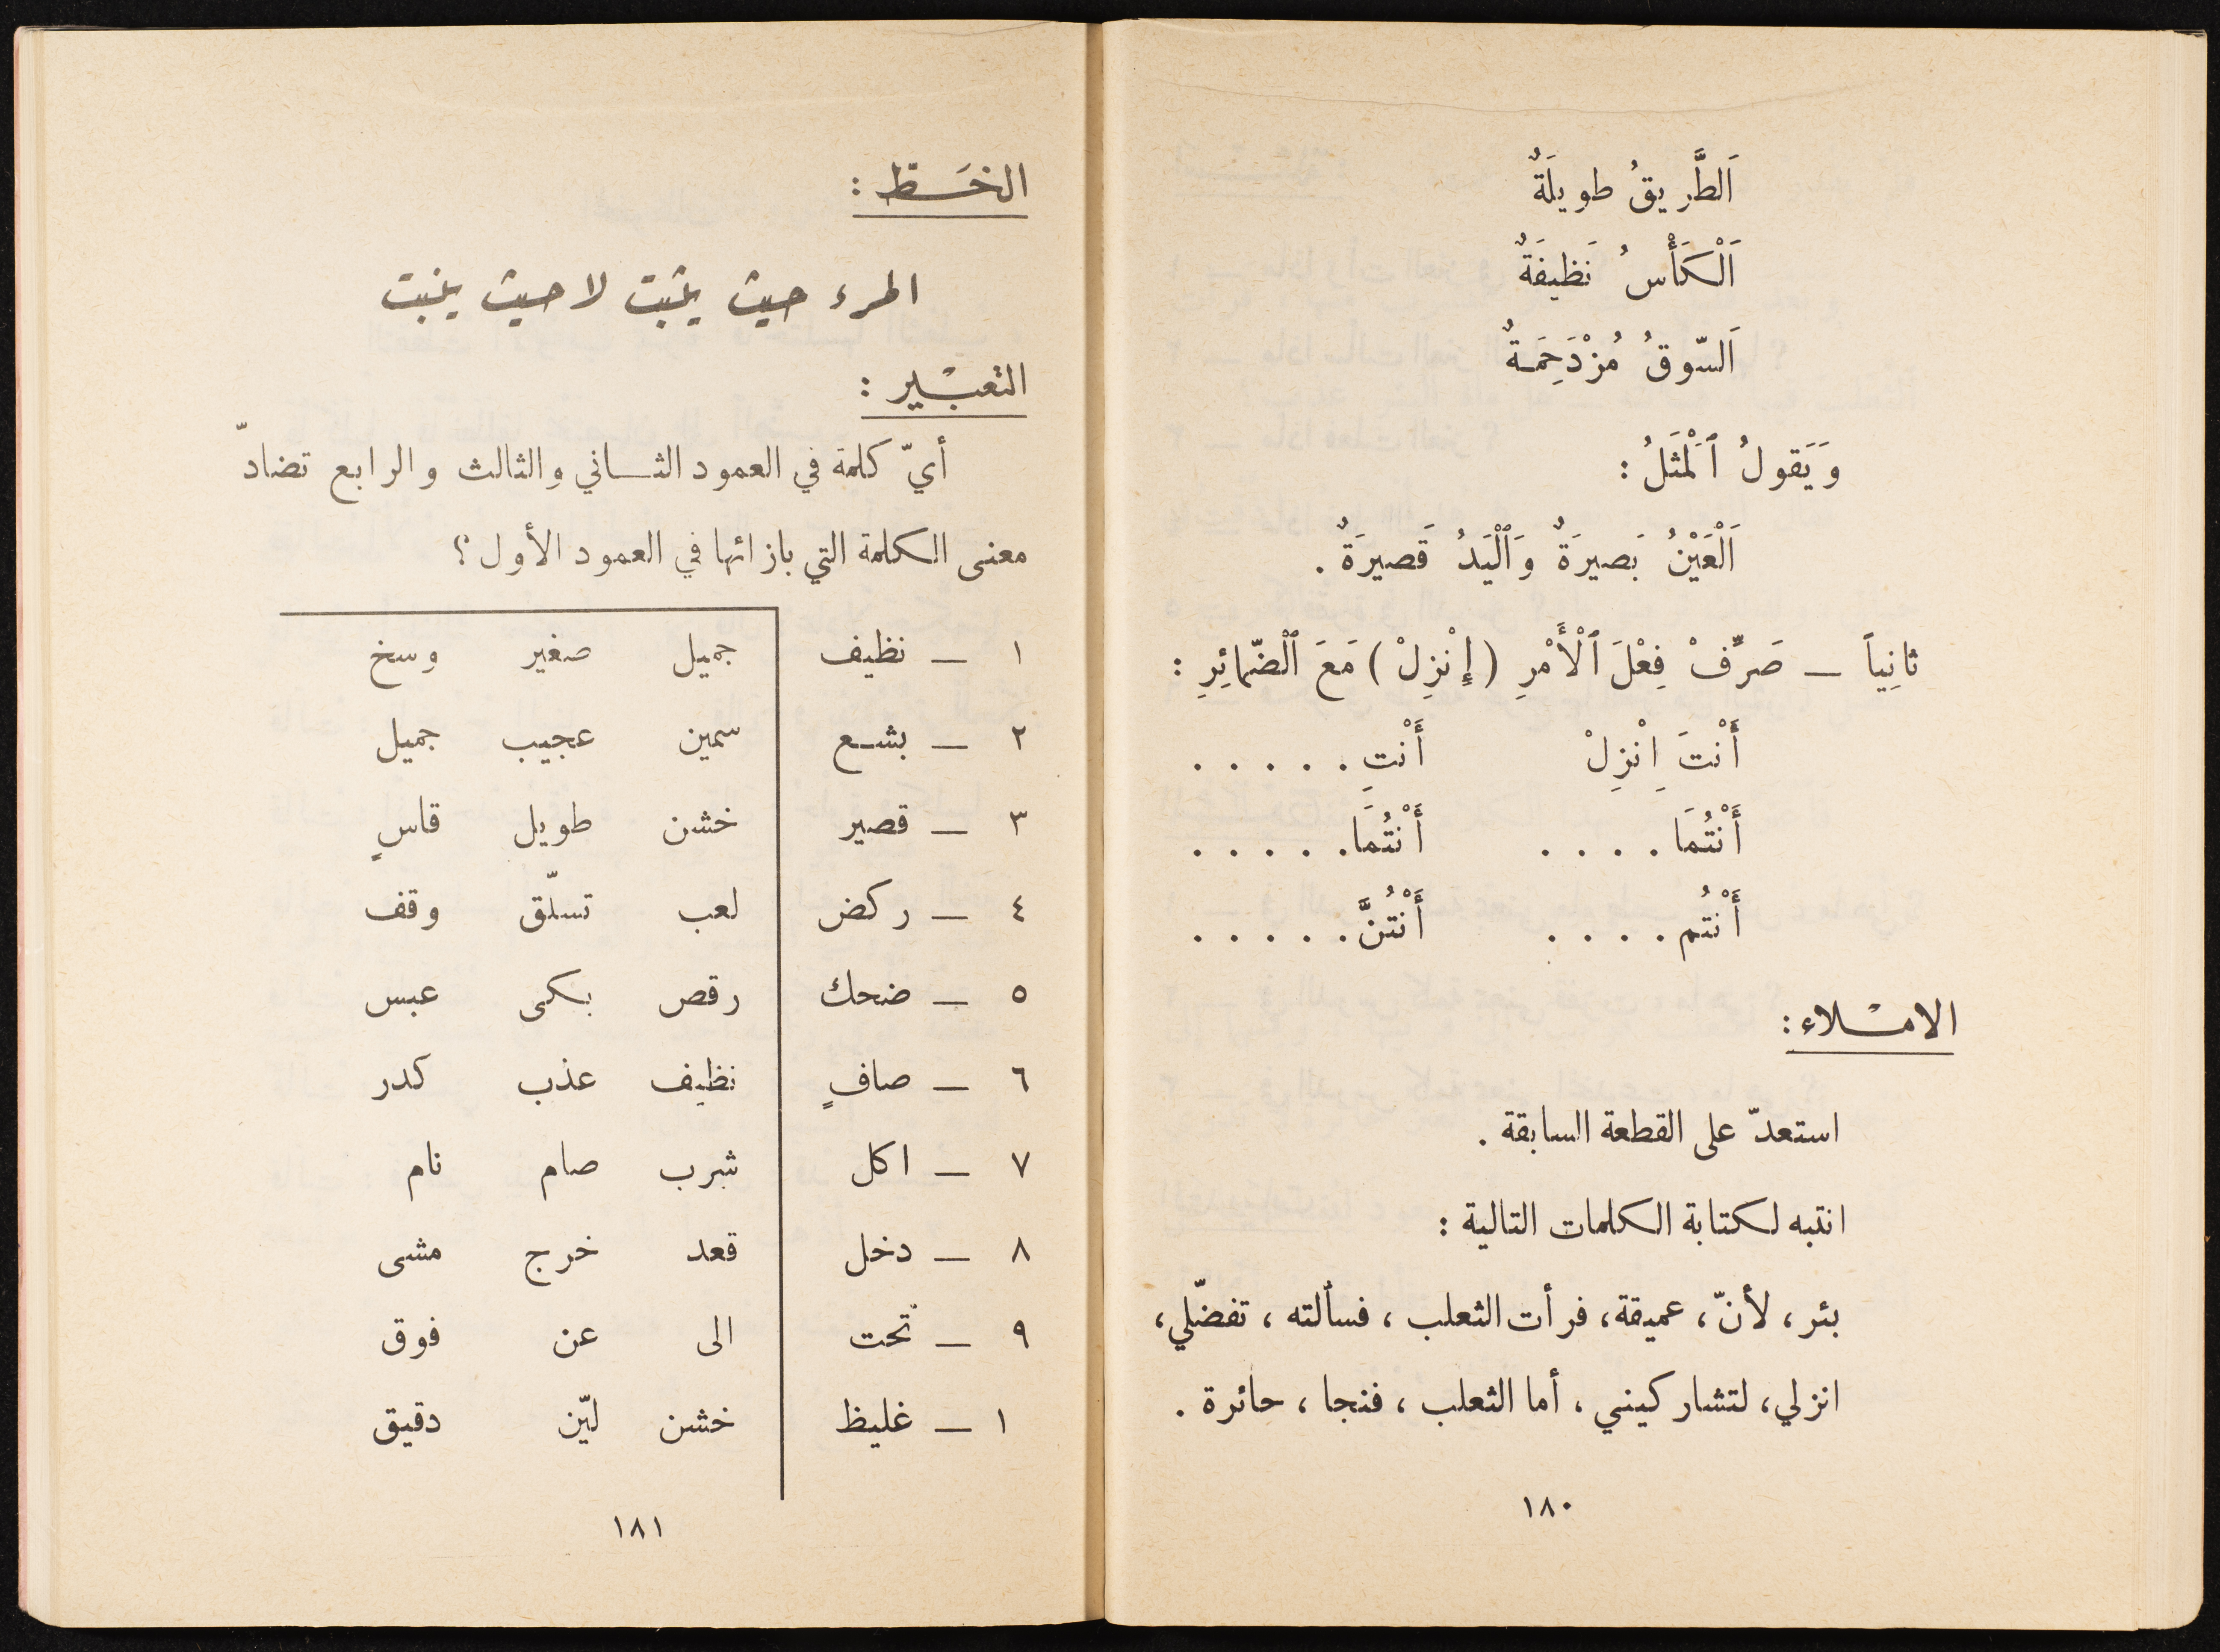 اَلطَّريقُ طويلَةٌ
اَلْكَأْسُ نَظيفَةٌ
اَلسّوقُ مُزْدَحِمَةٌ
وَيَقولُ ٱلْمَثَلُ :
اَلْعَيْنُ بَصيرَةٌ وَٱلْيَدُ قَصيرَةٌ .
ثانِياً — صَرِّفْ فِعْلَ ٱلْأَمْرِ ( إِنْزِلْ ) مَعَ ٱلْضّمائِرِ :
أَنْتَ اِنْزِلْ أَنْتِ . . . . .
أَنْتُمَا . . . . أَنْتُمَا . . . . .
أَنْتُم . . . . أَنْتُنَّ . . . . .
الامْلاء :
استعدّ على القطعة السابقة .
انتبه لكتابة الكلمات التالية :
بئر ، لأنّ ، عميقة ، فرأت الثعلب ، فسألته ، تفضّلي ،
انزلي ، لتشاركيني ، أما الثعلب ، فنجا ، حائرة .
١٨٠
الخَط :
المرء حيث يثبت لا حيث ينبت
التعبْير :
أيّ كلمة في العمود الثاني والثالث والرابع تضادّ
معنى الكلمة التي بازائها في العمود الأول ؟
١ — نظيف جميل صغير وسخ
٢ — بشع سمين عجيب جميل
٣ — قصير خشن طويل قاسٍ
٤ — ركض لعب تسلّق وقف
٥ — ضحك رقص بكى عبس
٦ — صافٍ نظيف عذب كدر
٧ — اكل شرب صام نام
٨ — دخل قعد خرج مشى
٩ — تحت الى عن فوق
١ — غليظ خشن ليّن دقيق
١٨١